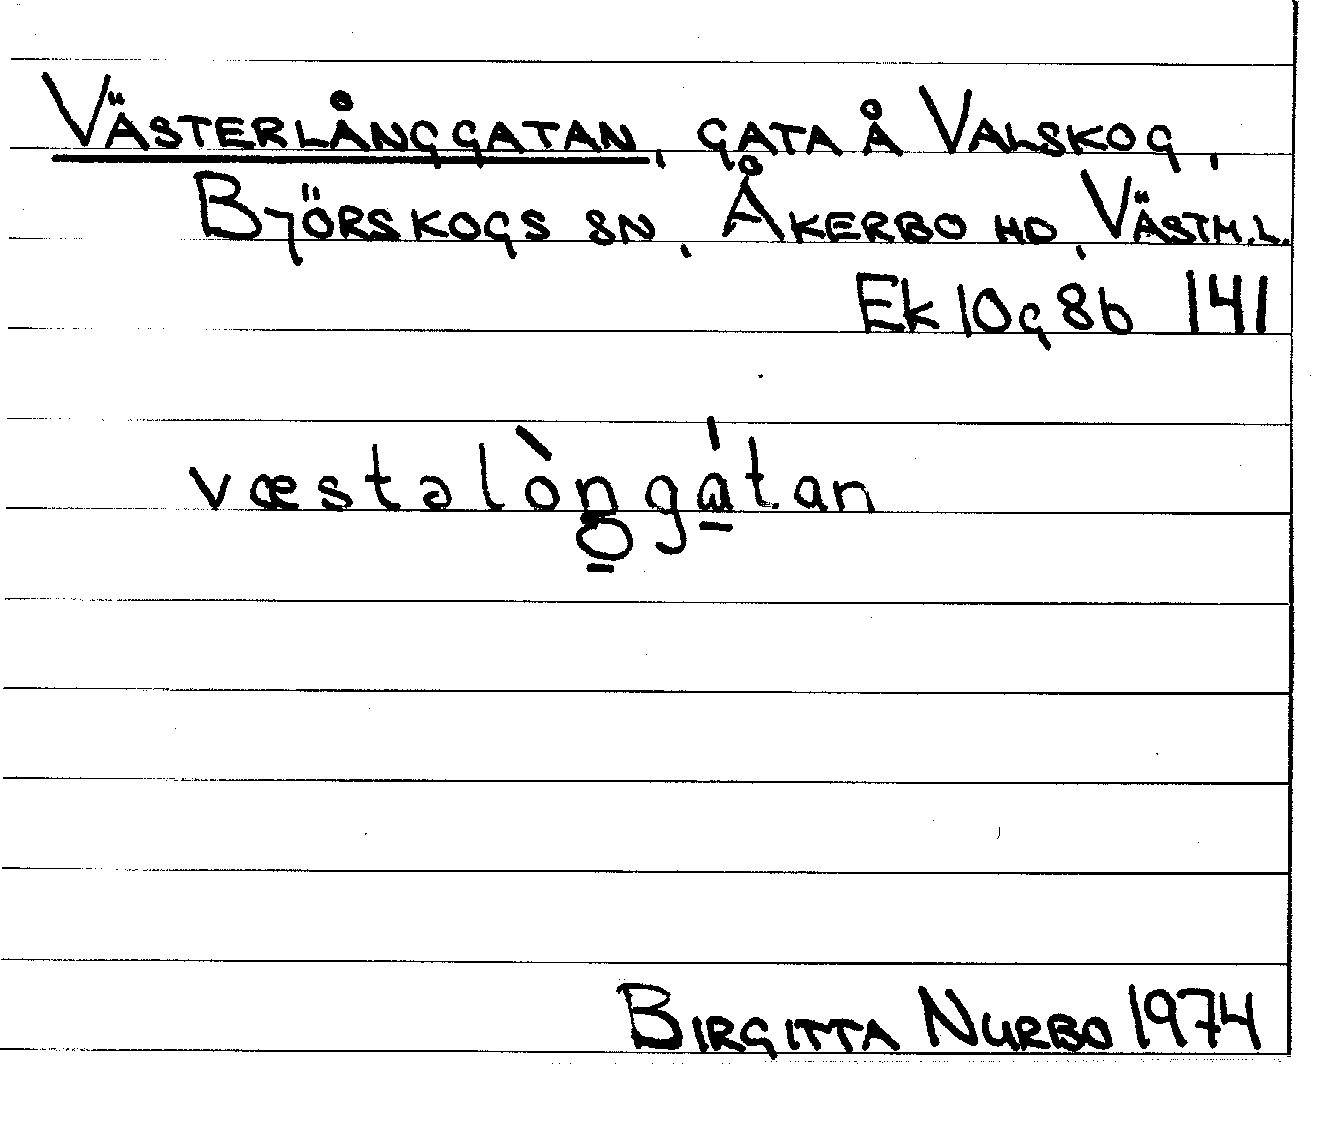 VÄSTERLÅNGGATAN, GATA Å VALSKOG,
BJÖRSKOGS SN, ÅKERBO HD, VÄSTM.L.
Ek 10g8b 141
væstəlòŋgɑ́tan
BIRGITTA NURBO 1974